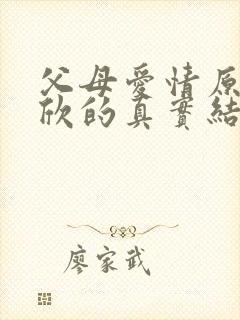 父母愛情原
欣的真實結
廖家武